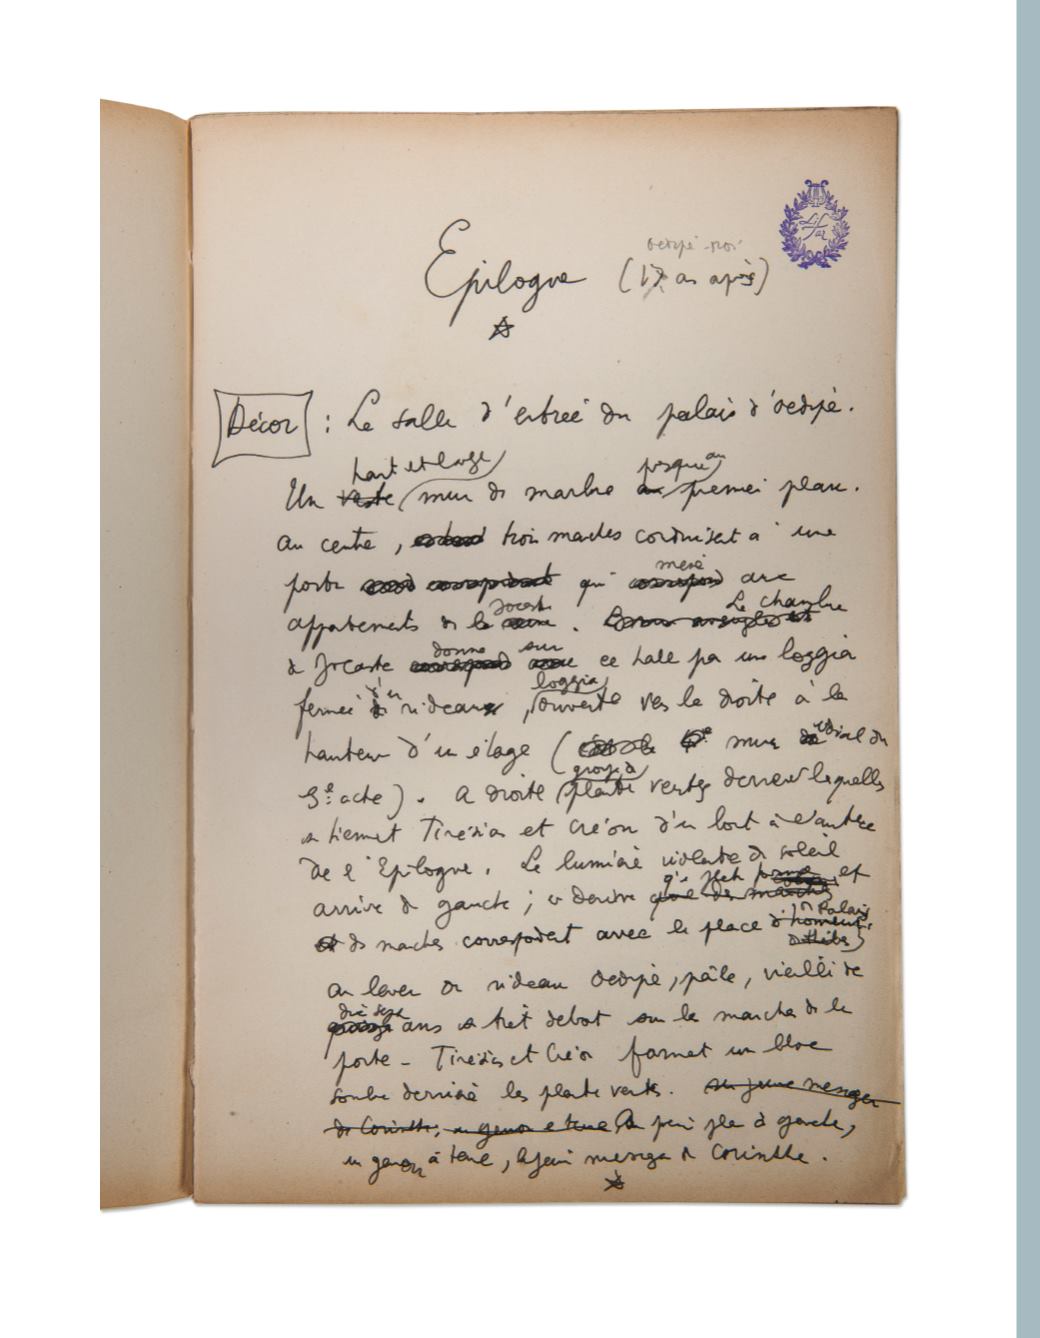 Epilogue
oedipe-roi
(17 ans après)
Décor : La salle d'entrée du palais d'oedipe.
haut et large jusque au
Un vaste mur de marbre au premier plan.
au centre, trois marches conduisent à une
mène
porte qui aux
Jocaste La chambre
appartements de la .
donne sur
de Jocaste ce hall par une loggia
d'un loggia
fermée de rideaux, ouverte vers la droite à la
hauteur d'un étage ( mur du
3e acte). A droite plante verte derrière lesquelles
se tiennent Tirésias et Créon d'un bout à l'autre
de l'Epilogue. La lumière violente du soleil
et
arrive de gauche ;
Palais
des marches correspondent avec la place
au lever du rideau Oedipe, pâle, vieilli de
dix sept
ans se tient debout sur la marche de la
porte - Tirésias et Créon forment un bloc
sombre derrière les plantes vertes. un jeune messager
de Corinthe, un genou à terre Un peu plus à gauche,
un genou à terre, le jeune messager de Corinthe.
Lifar